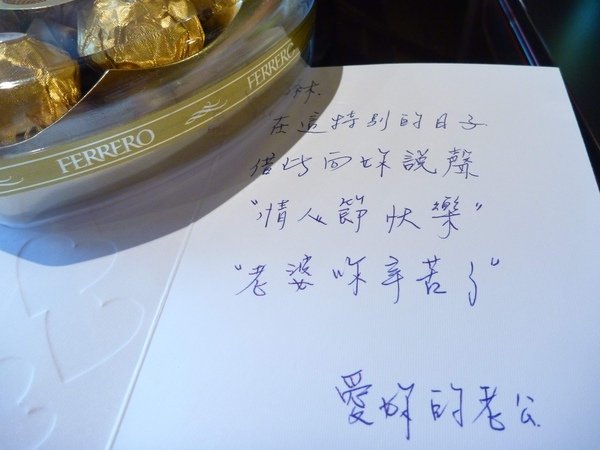 FERRERO
FERRERO
林.
在這特別的日子
借此向妳說聲
"情人節快樂"
"老婆妳辛苦了"
愛妳的老公